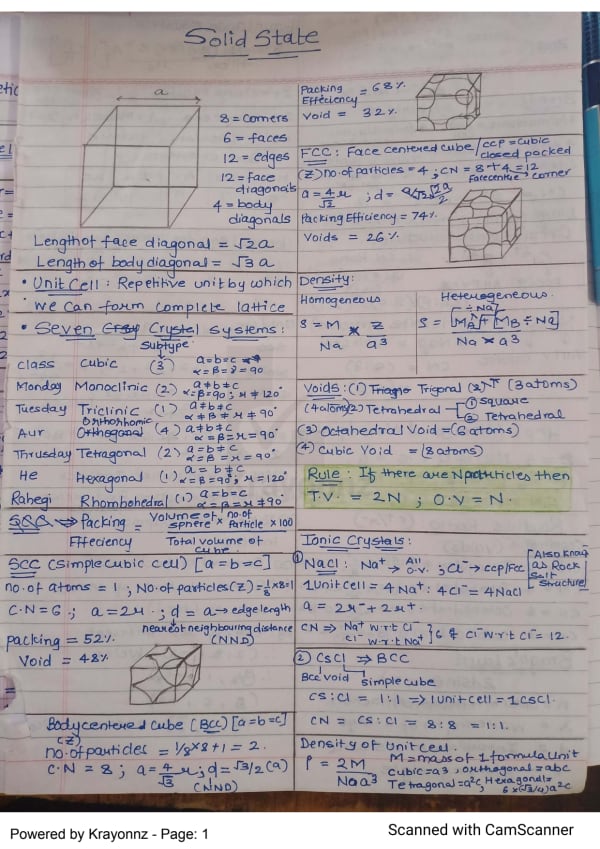 Solid State
a
8 = corners
6 = faces
12 = edges
12 = face
diagonals
4 = body
diagonals
Length of face diagonal = √2a
Length of body diagonal = √3 a
• Unit Cell : Repetitive unit by which
we can form complete lattice
• Seven Crystal systems :
subtype
class Cubic (3) a=b=c
α=β=γ=90
Monday Monoclinic (2) a≠b≠c
α=β=90; γ≠120°
Tuesday Triclinic (1) a≠b≠c
α≠β≠γ≠90°
Orthorhombic
Aur Orthogonal (4) a≠b≠c
α=β=γ=90°
Thrusday Tetragonal (2) a=b≠c
α=β=γ=90°
He Hexagonal (1) a=b≠c
α=β=90°, γ=120°
Rahegi Rhombohedral (1) a=b=c
α=β=γ≠90°
SCC ⇒ Packing = Volume of sphere × no.of Particle × 100
Effeciency Total volume of
cube
SCC (Simple cubic cell) [a=b=c]
no.of atoms = 1 ; No.of particles (Z) = 1/8×8=1
C.N=6 ; a=2r ; d=a→edge length
nearest neighbouring distance
(NND)
packing = 52%
Void = 48%
Body centered cube (BCC) [a=b=c]
(Z)
no.of particles = 1/8×8+1 = 2.
C.N = 8 ; a = 4/√3 r ; d = √3/2 (a)
(NND)
Packing
Effeciency = 68%
Void = 32%
FCC : Face centered cube / ccp = cubic
closed packed
(Z) no.of particles = 4 ; CN = 8+4=12
Facecentre, corner
a = 4/√2 r ; d =
Packing Efficiency = 74%
Voids = 26%
Density:
Homogeneous
Heterogeneous
÷Na
S = M/Na × Z/a³
S = [MA]+[MB÷Na]
Na × a³
Voids : (1) Trigonal (3 atoms)
(4 atoms) (2) Tetrahedral → (1) square
(2) Tetrahedral
(3) Octahedral Void = (6 atoms)
(4) Cubic Void = (8 atoms)
Rule : If there are N particles then
T.V. = 2N ; O.V = N.
Ionic Crystals :
(1) NaCl : Na⁺ → All O.V. ; Cl⁻ → ccp/Fcc
[Also know as Rock Salt Structure]
1 Unit cell = 4 Na⁺ : 4Cl⁻ = 4NaCl
a = 2r⁻ + 2r⁺.
CN ⇒ Na⁺ w.r.t Cl⁻
Cl⁻ w.r.t Na⁺ } 6 & Cl⁻ w.r.t Cl⁻ = 12.
(2) CsCl ⇒ BCC
Bcc void simple cube
CS : Cl = 1:1 ⇒ 1 Unit cell = 1 CsCl.
CN = CS : Cl = 8 : 8 = 1:1.
Density of Unit cell.
ρ = ZM/Na a³
M = mass of 1 formula unit
Cubic = a3, orthogonal = abc
Tetragonal = a²c, Hexagonal =
6 × (√3/4) a²c
Powered by Krayonnz - Page: 1
Scanned with CamScanner